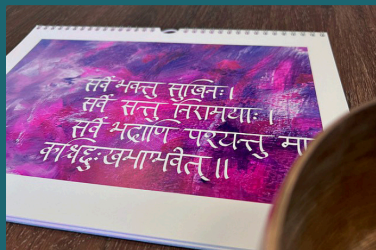 सर्वे भवन्तु सुखिनः।
सर्वे सन्तु निरामयाः।
सर्वे भद्राणि पश्यन्तु मा
कश्चिद्दुःखभाग्भवेत्॥